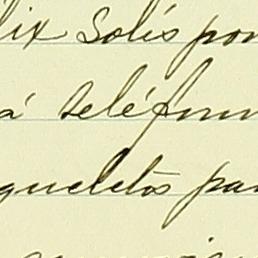 lix Solís por
á teléfon
queletos par